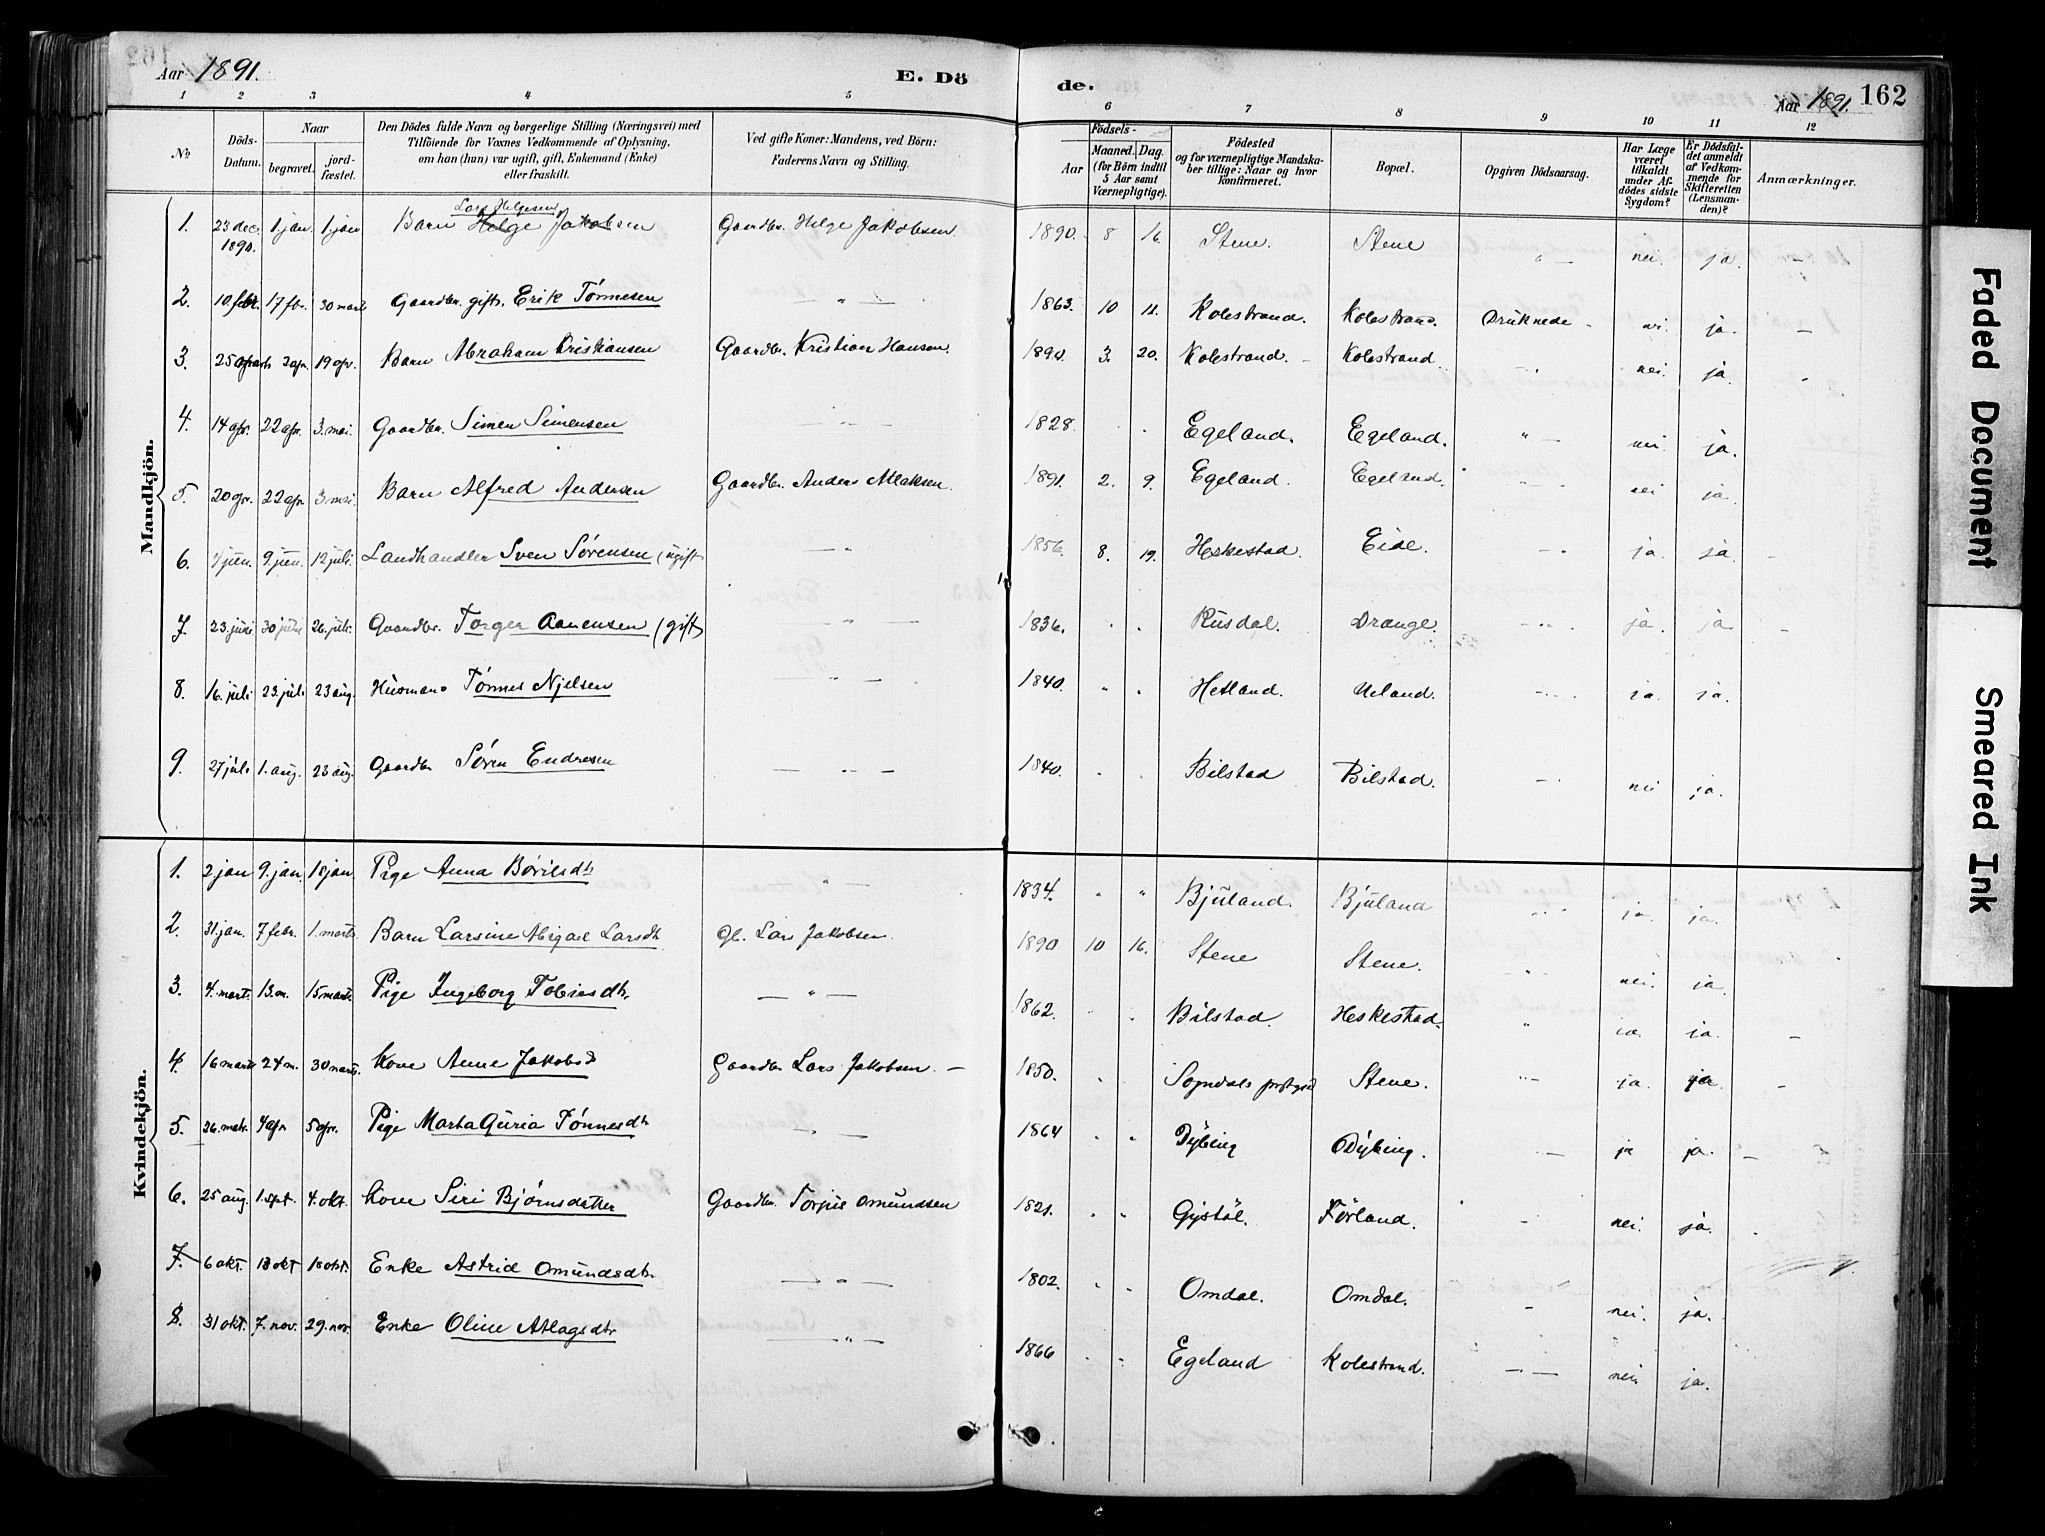 Aar 1891. E. Dö de. Aar 1891. 162
1 2 3 4 5 6 7 8 9 10 11 12
No Döds-Datum. Naar begravet. jordfæstet. Den Dödes fulde Navn og borgerlige Stilling (Næringsvei) med Tilföiende for Voxnes Vedkommende af Oplysning, om han (hun) var ugift, gift, Enkemand (Enke) eller fraskilt. Ved gifte Koner: Mandens, ved Börn: Faderens Navn og Stilling. Födsels- Aar Maaned. Dag. (for Börn indtil 5 Aar samt Værnepligtige). Födested og for værnepligtige Mandskaber tillige: Naar og hvor konfirmeret. Bopæl. Opgiven Dödsaarsag. Har Læge været tilkaldt under Afdödes sidste Sygdom? Er Dödsfaldet anmeldt af Vedkommende for Skifteretten (Lensmanden)? Anmærkninger.
Mandkjön.
Lars Helgesen
1. 23 dec. 1890. 1. jan. 1. jan Barn Helge Jakobsen Gaardbr. Helge Jakobsen. 1890. 8 16. Stene. Stene " — nei. ja. —
2. 10. febr. 17 fbr. 30 marts Gaardbr. gift. Erik Tønnesen — " — 1863. 10 11. Kolestrand. Kolestrand. Druknede - ja. —
3. 25 marts 2 apr. 19 apr. Barn Abraham Kristiansen Gaardbr. Kristian Hansen. 1890. 3. 20. Kolestrand. Kolestrand. nei. ja.
4. 14 apr. 22 apr. 3. mai. Gaardbr. Simen Simensen — " — 1828. Egeland. Egeland. " — nei ja.
5. 20 apr. 22 apr 3. mai. Barn Alfred Andersen Gaardbr. Anders Atlaksen. 1891. 2. 9. Egeland. Egeland. nei ja.
6. 9. jun. 12 juli. Landhandler Sven Sørensen (ugift — " 1856. 8. 19. Heskestad. Eide. ja ja -
7. 23. juni 30 juni 26. juli. Gaardbr. Torger Aanensen (gift — " — 1836. Rusdal. Drange. ja. ja -
8. 16. juli 23. juli 23 aug. Husmand Tønnes Njelsen — " — 1840. " " Hetland. Ueland. ja. ja.
9. 27 juli 1. aug. 23 aug. Gaardbr Søren Endresen — " — 1840. Bilstad Bilstad. nei ja.
Kvindekjön.
1. 2. jan 9. jan. 18 jan Pige Anna Børilsdtr — " — 1834. " " Bjuland. Bjuland ja. ja.
2. 31 jan. 7 febr. 1. marts Barn Larsine Abigael Larsdtr Gb. Lars Jakobsen. 1890 10 16. Stene Stene. " nei. ja.
3. 4. mart. 13. m. 15 marts Pige Ingeborg Tobiasdtr. — " — 1862. Bilstad. Heskestad. " ja. ja. —
4. 16 marts 24 m. 30 marts. Kone Anne Jakobsd Gaardbr Lars Jakobsen. — 1850. Sogndals prstgjld Stene. ja. ja -
5. 26. mar. 4 apr 5 apr. Pige Marta Guria Tønnesdtr — " — 1864 Dybing Dybing. ja ja. —
6. 25 aug. 1. spt. 4. okt. Kone Siri Bjørnsdatter Gaardbr. Torjus Omundsen 1821. Gystøl. Førland. - nei. ja.
7. 6 okt. 13 okt 18 okt. Enke Astrid Omundsdtr — " — 1802. Omdal. Omdal. - nei. ja.
8. 31 okt. 7. nov. 29. nov. Enke Oline Atlagsdtr — " — 1866 Egeland Kolestrand. — nei. ja.
Faded Document
Smeared Ink